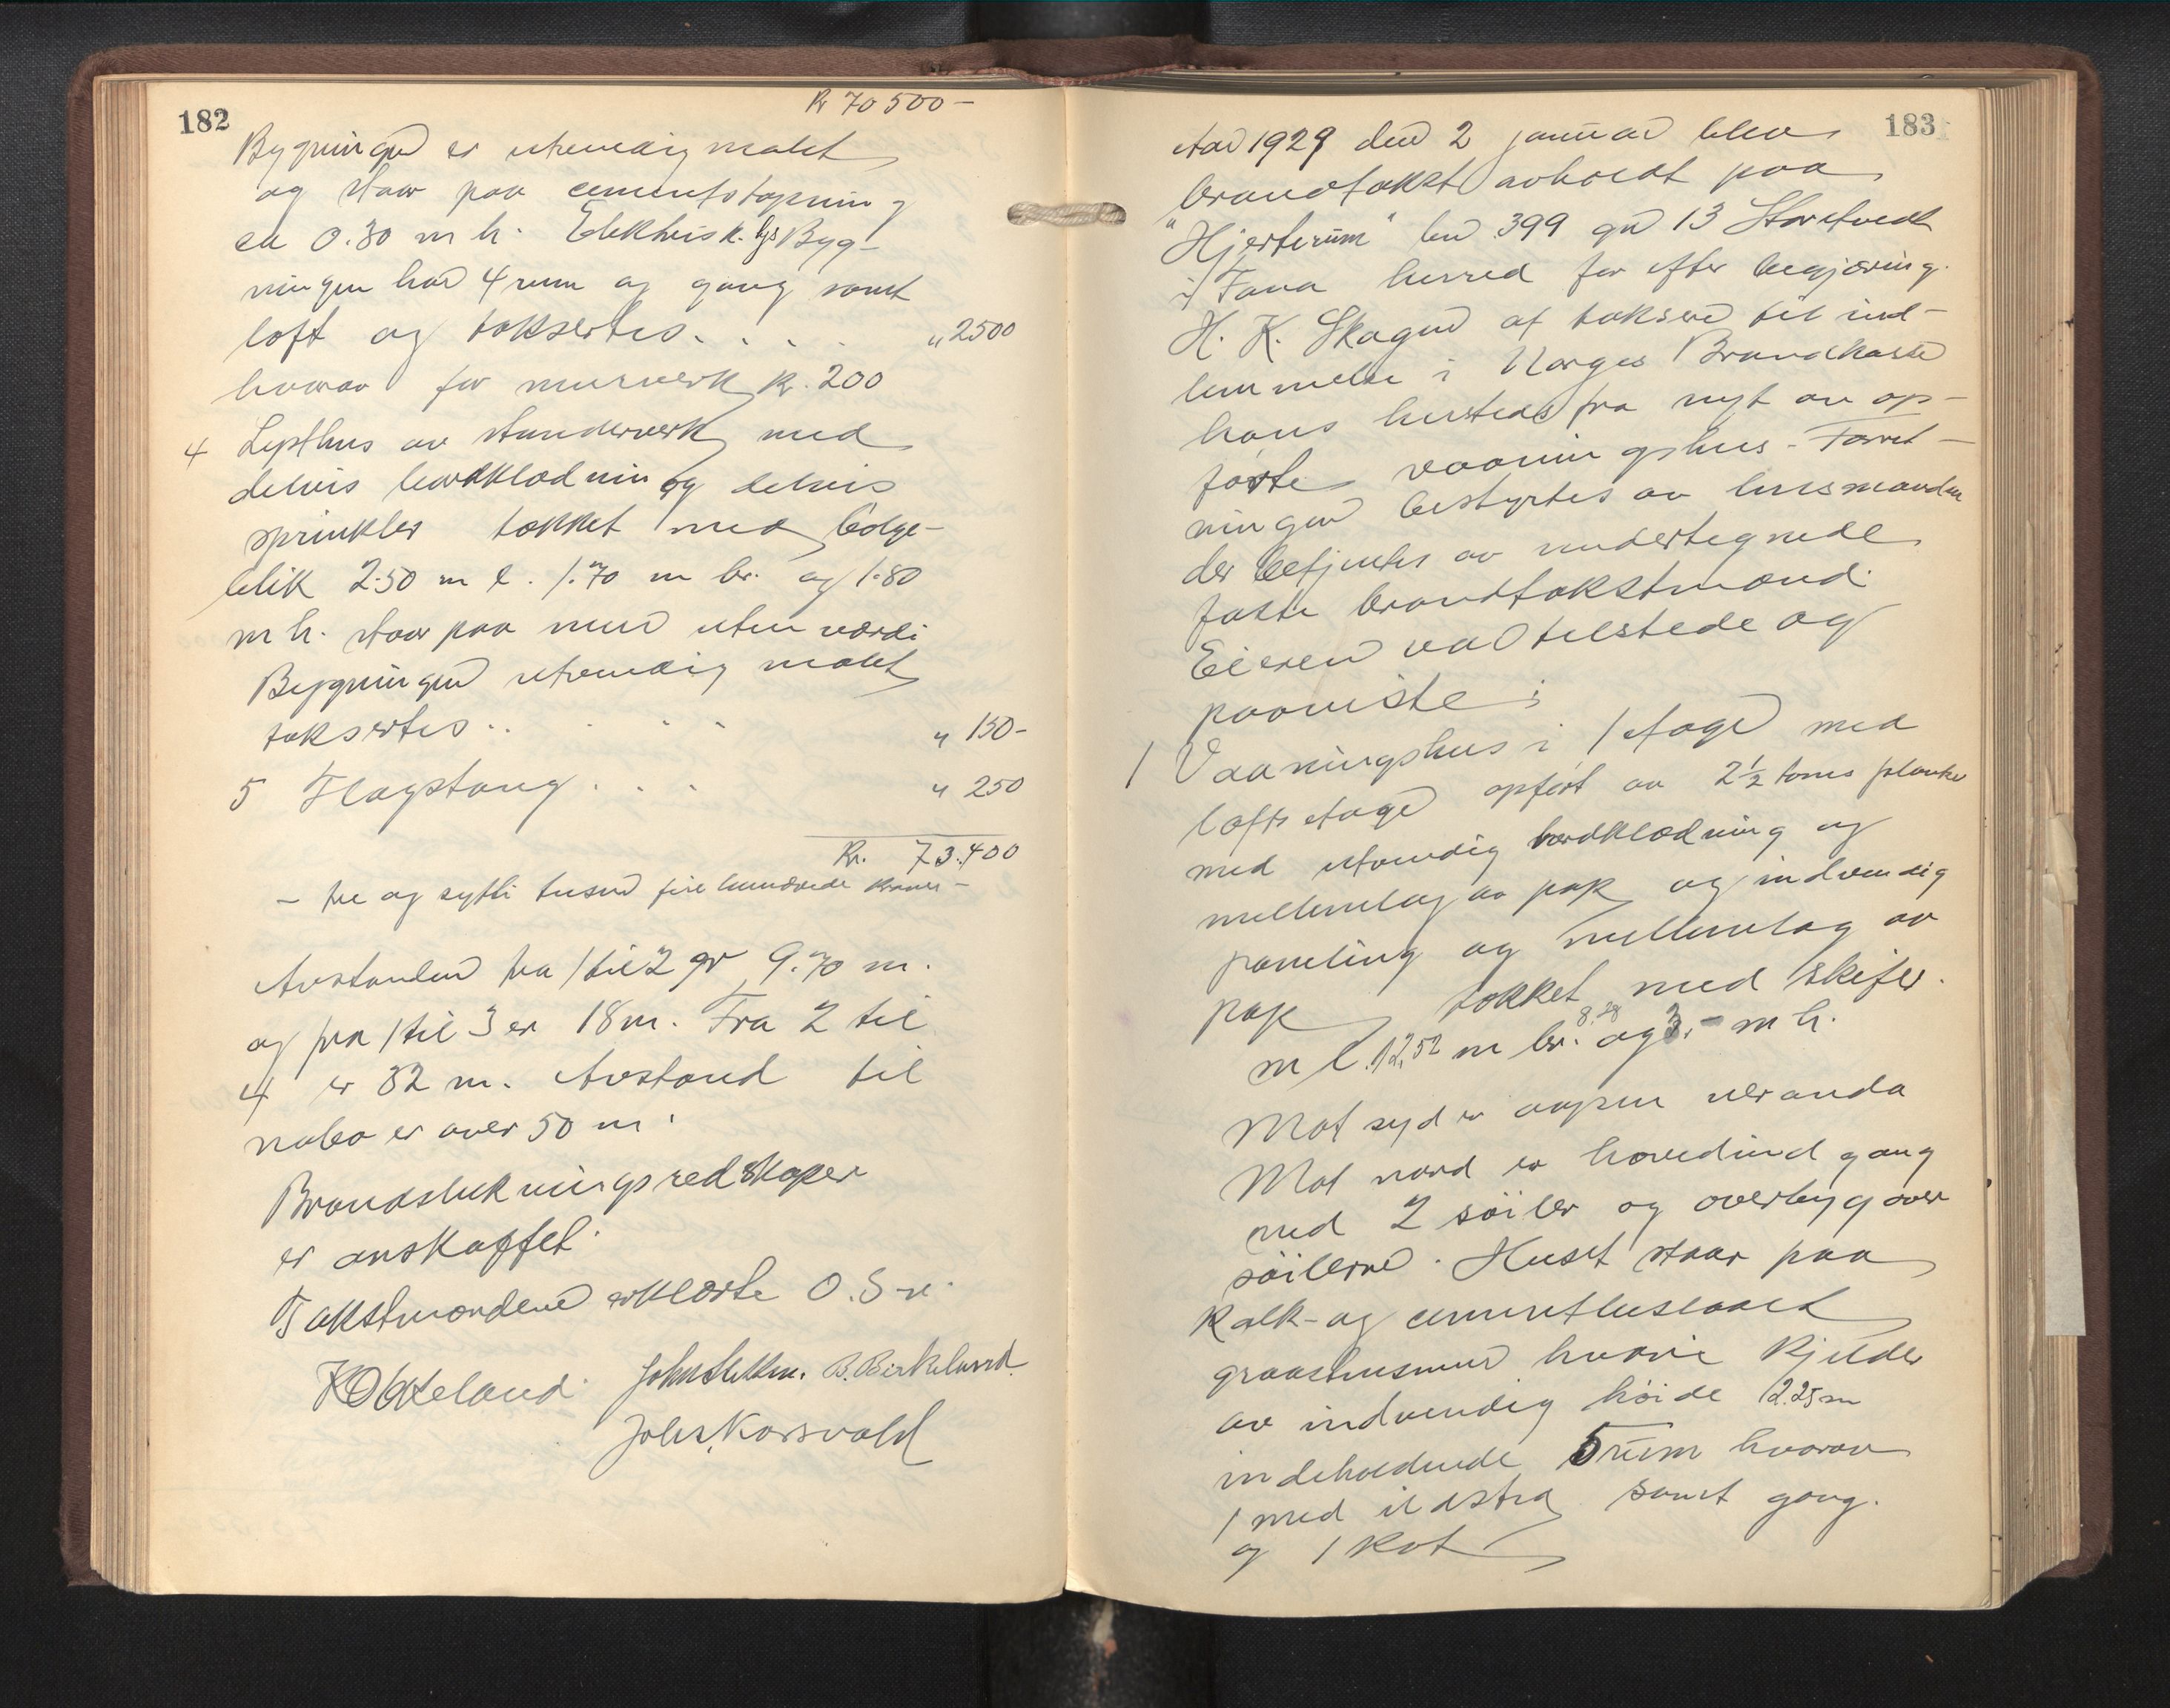 182
Kr 70 500 -
Bygningen er utvendig malet
og staar paa cementstøpning
ca 0.30 m h. Elektrisk. lys Byg-
ningen har 4 rum og gang samt
loft og takseres. . . . " 2500
hvorav for murverk kr. 200
4 Lysthus av stenderverk med
delvis bordklædning og delvis
sprinkler tækket med bølge-
blik 2.50 m l. 1.70 m br. og 1.80
m h. staar paa mur uten værdi
Bygningen utvendig malet
taksertes . . . . . " 150 -
5 Flagstang . . . " 250
Kr. 73.400
- tre og sytti tusen fire hundrede kroner -
Avstanden fra 1 til 2 er 9.70 m.
og fra 1 til 3 er 18 m. Fra 2 til
4 er 32 m. Avstand til
nabo er over 50 m.
Brandslukningsredskaper
er anskaffet.
Takstmændene erklærte O. S. v.
B. Birkelund.
Johs. Korsvold
183
Aar 1929 den 2 januar blev
brandtakst avholdt paa
"Hjerterum" bn 399 gn 13 Storetvedt
i Fana herred for efter begjæring
H. K. Skagen at taksere til ind-
lemmelse i Norges Brandkasse
hans hersteds fra nyt av op-
førte vaaningshus. Forret-
ningen bestyrtes av lensmanden
der betjentes av undertegnede
faste brandtakstmænd.
Eieren var tilstede og
paaviste:
1 Vaaningshus i 1 etage med
loftsetage opført av 2½ toms planker
med utvendig bordklædning og
mellemlag av pap og indvendig
paneling og mellemlag av
pap tækket med skifer.
m l. 12,52 m br. 8.28 og 3.- m h.
Mot syd er aapen veranda
Mot nord er hovedindgang
med 2 søiler og overbyg over
søilerne. Huset staar paa
kalk- og cementbeslaaet
graastensmur hvori kjelder
av indvendig høide 2.25 m
indeholdende 5 rum hvorav
1 med ildsted samt gang.
og 1 kot